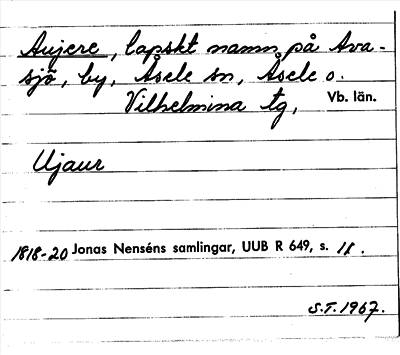 Aujere, lapskt namn på Ava-
sjö, by, Åsele sn, Åsele o.
Vilhelmina tg, Vb. län.
Ujaur
1818-20 Jonas Nenséns samlingar, UUB R 649, s. 11.
S.T. 1967.